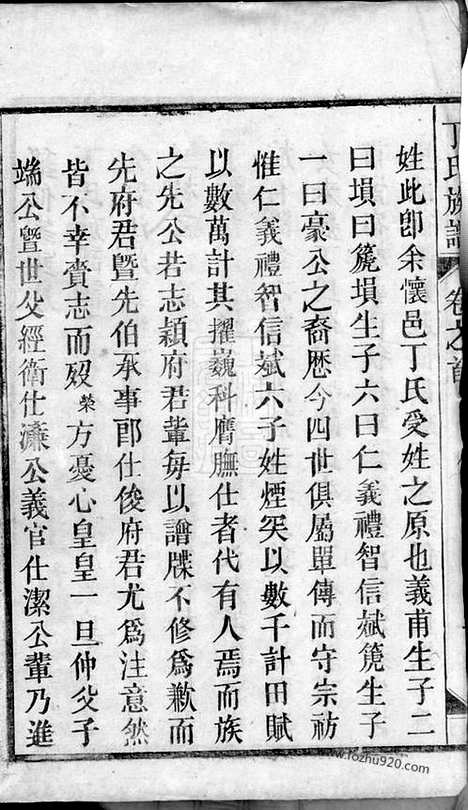 丁氏族譜 卷之首
姓此卽余懷邑丁氏受姓之原也義甫生子二
曰塤曰箎塤生子六曰仁義禮智信斌箎生子
一曰豪公之裔歷今四世俱屬單傳而守宗祊
惟仁義禮智信斌六子姓煙突以數千計田賦
以數萬計其擢巍科膺膴仕者代有人焉而族
之先公若志穎府君輩每以譜牒不修爲歉而
先府君暨先伯承事郎仕俊府君尤爲注意然
皆不幸賫志而歿榮方憂心皇皇一旦仲父子
端公暨世父經衛仕濂公義官仕潔公輩乃進
www.fozhu920.com